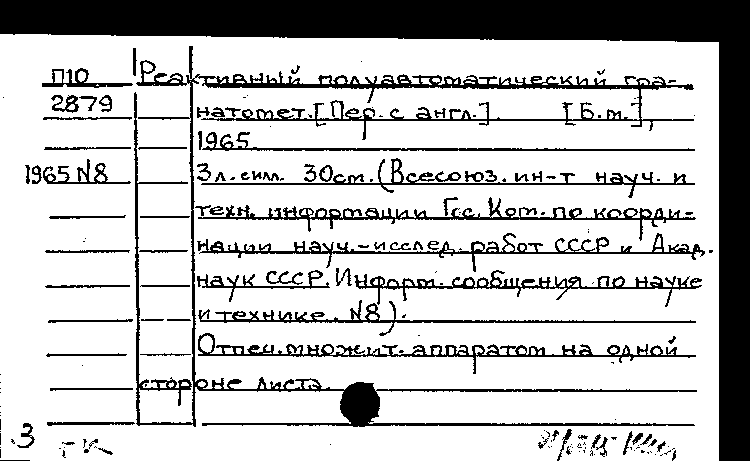 П10 Реактивный полуавтоматический гра-
2879 натомет. [Пер. с англ.]. [Б.м.],
1965.
1965 N8 3 л. илл. 30 см. (Всесоюз. ин-т науч. и
техн. информации Гос. Ком. по коорди-
нации науч.-исслед. работ СССР и Акад.
наук СССР. Информ. сообщения по науке
и технике. N8).
Отпеч. множит. аппаратом на одной
стороне листа.
3 гк